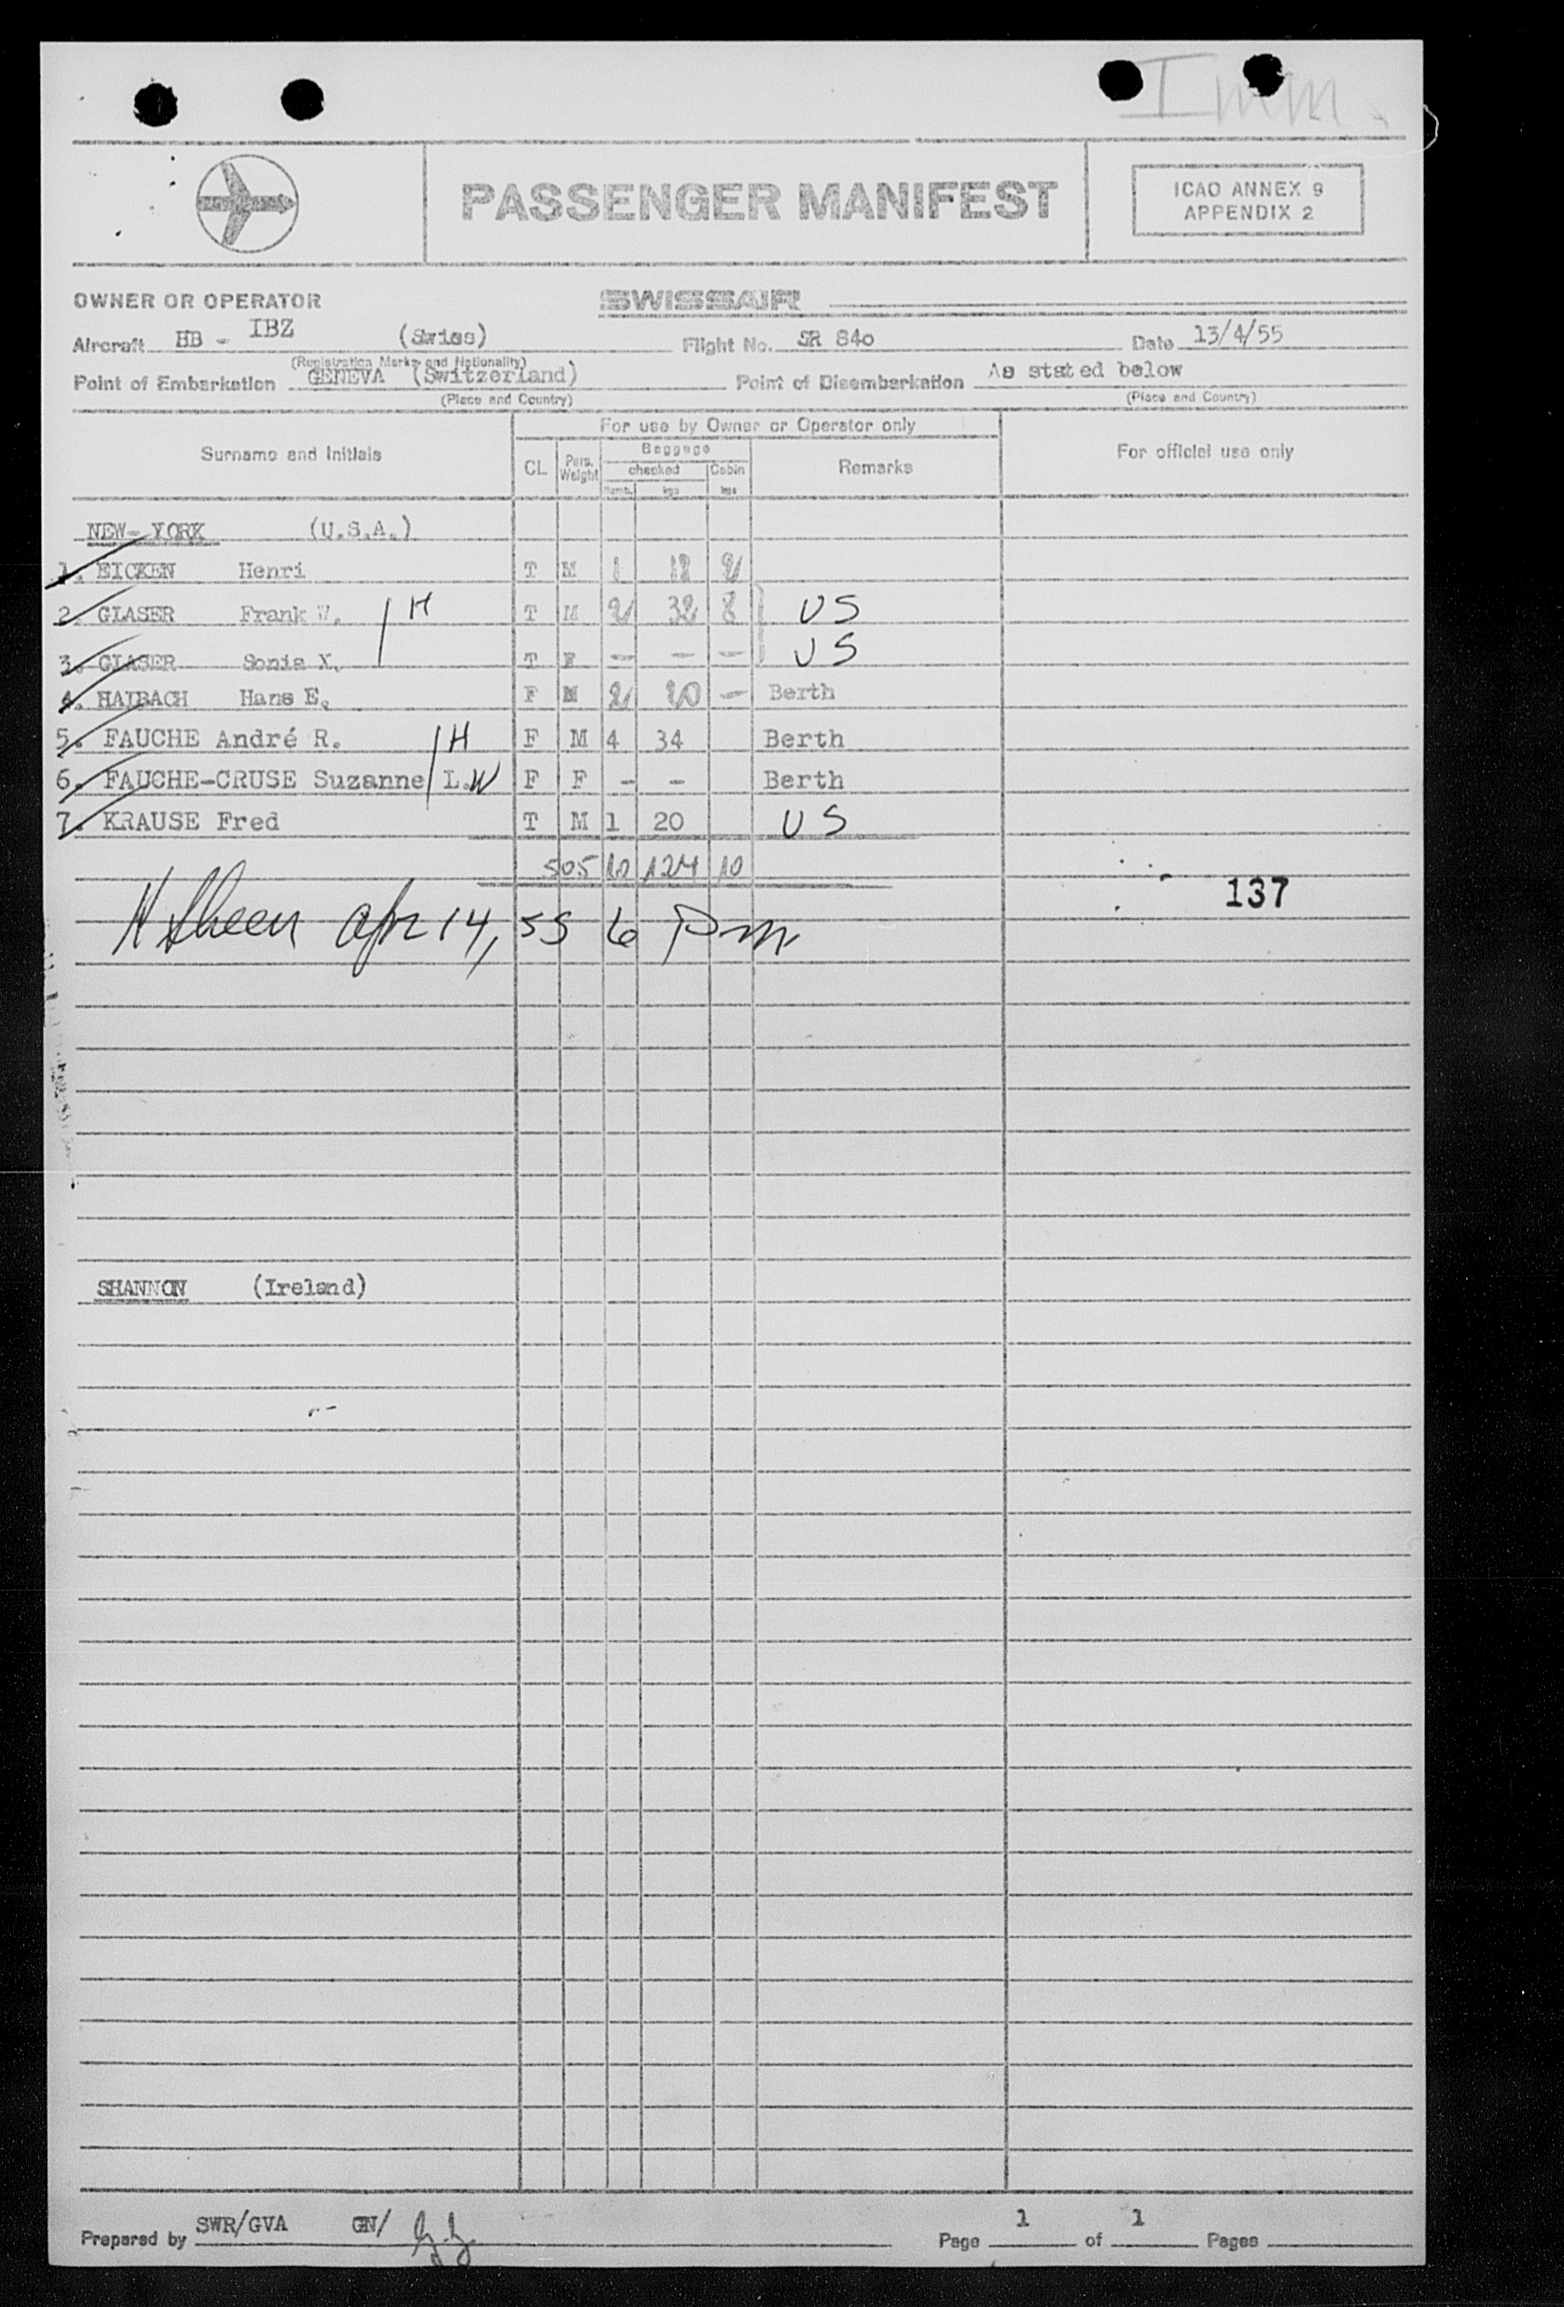 Imm.
PASSENGER MANIFEST
ICAO ANNEX 9
APPENDIX 2
OWNER OR OPERATOR SWISSAIR
Aircraft HB - IBZ (Swiss) Flight No. SR 840 Date 13/4/55
(Registration Marks and Nationality)
Point of Embarkation GENEVA (Switzerland) Point of Disembarkation As stated below
(Place and Country) (Place and Country)
For use by Owner or Operator only
Surname and Initials CL Pers. Weight Baggage checked Cabin Remarks For official use only
Numb. kgs kgs
NEW-YORK (U.S.A.)
1. EICKEN Henri T M 1 18 2
2. GLASER Frank W. H T M 2 32 8 US
3. GLASER Sonia X. T F - - - US
4. HAIBACH Hans E. F M 2 20 - Berth
5. FAUCHE André R. H F M 4 34 Berth
6. FAUCHE-CRUSE Suzanne L. W F F - - Berth
7. KRAUSE Fred T M 1 20 US
505 10 124 10
137
N Sheen Apr 14, 55 6 Pm
SHANNON (Ireland)
Prepared by SWR/GVA GN/ Page 1 of 1 Pages